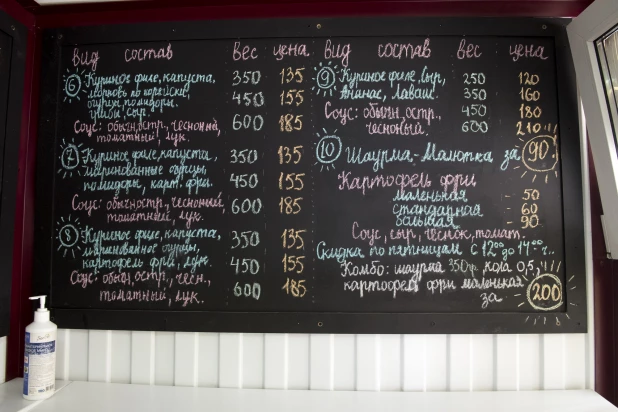 вид состав вес цена
6 Куриное филе, капуста, 350 135
морковь по корейски,
огурцы, помидоры, 450 155
грибы, сыр.
Соус: обычн, остр., чесноный, 600 185
томатный, лук.
7 Куриное филе, капуста, 350 135
маринованные огурцы,
помидоры, карт. фри. 450 155
Соус: обычн, остр., чесноный 600 185
томатный, лук.
8 Куриное филе, капуста, 350 135
маринованное огурцы,
картофель фри, лук 450 155
Соус: обычн, остр., чесн.,
томатный, лук. 600 185
вид состав вес цена
9 Куриное филе, сыр, 250 120
Ананас, Лаваш. 350 160
Соус: обычн, остр., 450 180
чесноный. 600 210
10 Шаурма-Малютка за 90
Картофель фри
маленькая - 50
стандарная - 60
большая - 90
Соус, сыр, чеснок, томат.
Скидка по пятницам с 12:00 до 14:00 ч..
Комбо: шаурма 350гр. кола 0,5,
картофель фри маленькая
за 200